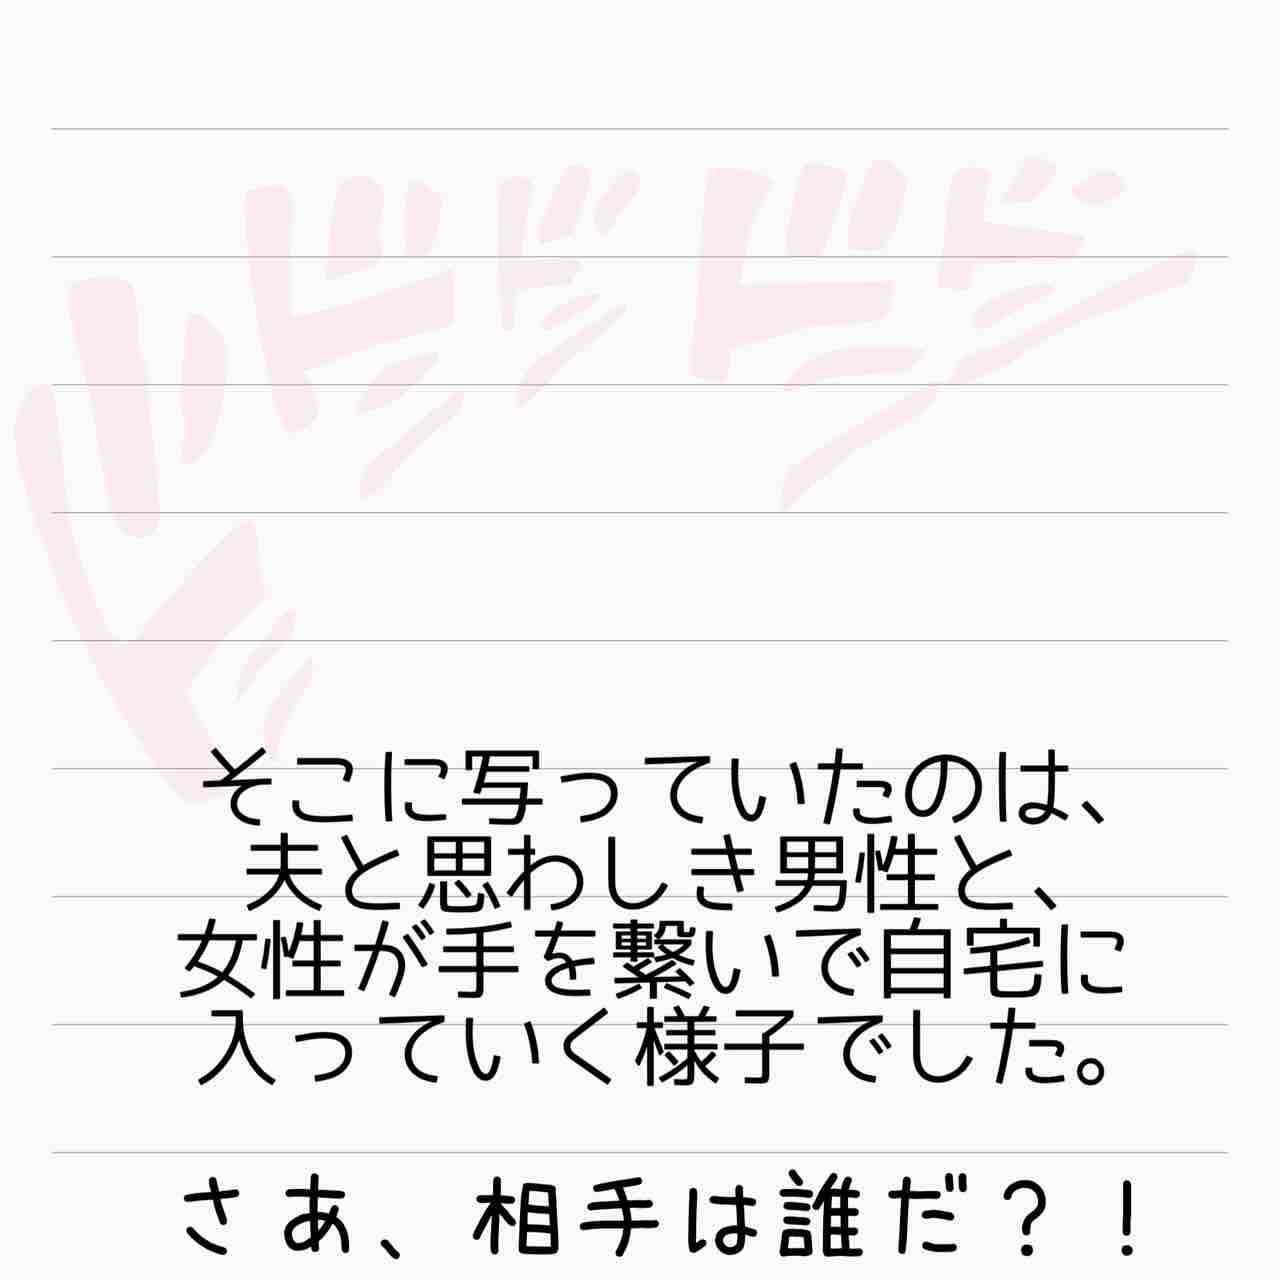 ドドドド
そこに写っていたのは、
夫と思わしき男性と、
女性が手を繋いで自宅に
入っていく様子でした。
さあ、相手は誰だ？！